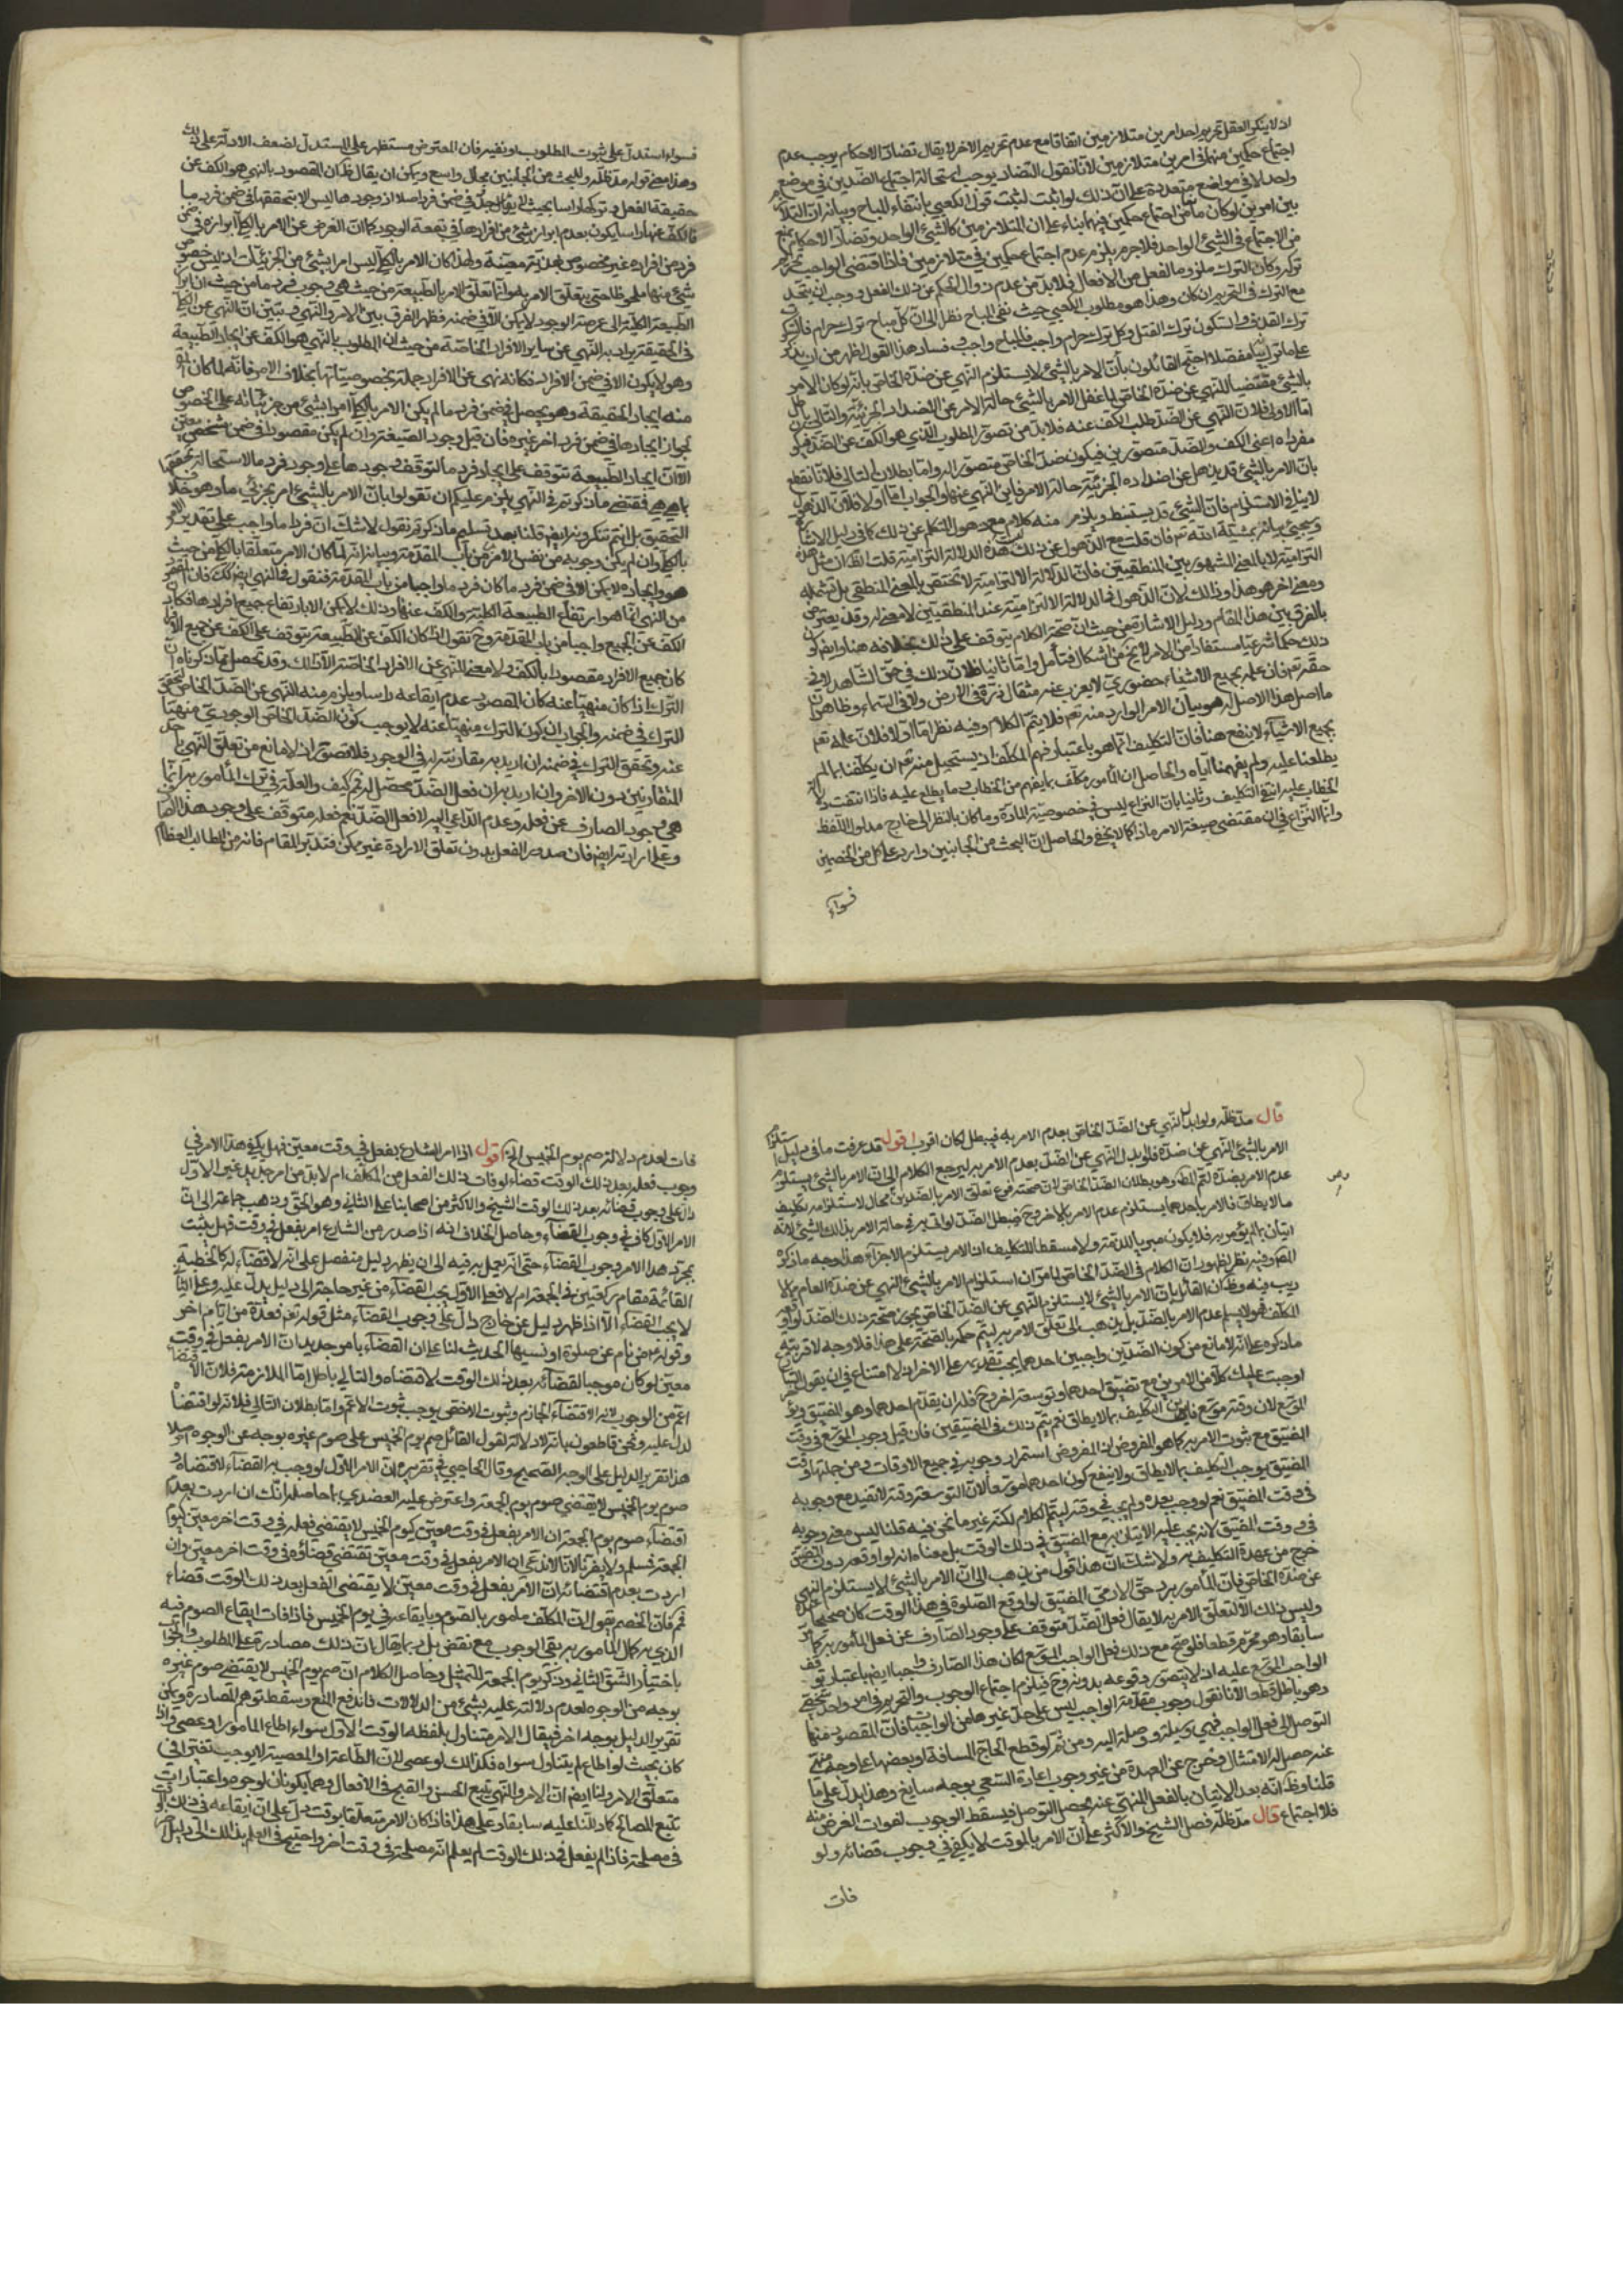 اذ لا ينكر العقل تحريم احد امرين متلازمين اتفاقا مع عدم تحريم الاخر لا يقال تضاد الاحكام يوجب عدم
اجتماع حكمين منها في امرين متلازمين لانا نقول التضاد يوجب استحالة اجتماع الضدين في موضع
واحد لا في مواضع متعددة على ان ذلك لو اثبت لثبت قول الكعبي بانتفاء المباح وبيانه ان التلازم
بين امرين لو كان مانعا من اجتماع حكمين فيهما بناء على ان المتلازمين كالشيء الواحد وتضاد الاحكام يمنع
من الاجتماع في الشيء الواحد فلا جرم يلزم عدم اجتماع حكمين في متلازمين فاذا اقتضى الواجب تحريم
تركه وكان الترك ملزوما لفعل من الافعال فلا بد من عدم زوال الحكم عن ذلك الفعل ووجب ان يتحد
مع الترك في التحريم ان كان وهذا هو مطلوب الكعبي حيث نفى المباح نظرا الى ان كل مباح ترك حرام
ترك القذف والسكون ترك القتل وكل ترك حرام واجب فالمباح واجب وفساد هذا القول اظهر من ان يذكر
مفصلا احتج القائلون بان الامر بالشيء لا يستلزم النهي عن ضده الخاص بانه لو كان الامر
بالشيء مقتضيا للنهي عن ضده الخاص لما غفل الامر بالشيء حالة الامر عن الاضداد الجزئية والتالي باطل
اما الاولى فلان النهي عن الضد طلب الكف عنه فلا بد من تصور المطلوب الذي هو الكف عن الضد
مفرداه اعني الكف والضد متصورين فيكون ضد الخاص متصورا له واما بطلان التالي فلانا نقطع
بان الامر بالشيء قد يذهل عن اضداده الجزئية حالة الامر فاين النهي عنها والجواب اما اولا فلان الذهول
لا ينافي الاستلزام فان الشيء قد يستنبط ويلزم منه كلام مع ذهول المتكلم عن ذلك كما في دليل الاشارة
وسيجيء بيانه بمشية الله تعم فان قلت مع الذهول عن ذلك هذه الدلالة التزامية قلت الظ ان مثل هذه
التزامية لا بالمعنى المشهور بين المنطقيين فان الدلالة الالتزامية لا تختص بالمعنى المنطقي بل تشمله
ومعنى اخر هو هذا وذلك لان الذهول في الدلالة الالتزامية عند المنطقيين لا معنى له وقد يعترض
بالفرق بين هذا المقام ودليل الاشارة من حيث ان صحة الكلام يتوقف على ذلك بخلافه هنا وايضا كون
ذلك حكما شرعيا مستفادا من الامر لا يخ من اشكال فتأمل واما ثانيا فلان ذلك في حق الشاهد لا في
حقه تعم فان علمه بجميع الاشياء حضوري لا يعزب عنه مثقال ذرة في الارض ولا في السماء وظاهر ان
ما اصل هذا الاصل له هو بيان الامر الوارد منه تعم فلا يتم الكلام وفيه نظر اما اولا فلان علمه تعم
بجميع الاشياء لا ينفع هنا فان التكليف انما هو باعتبار فهم المكلف اذ يستحيل منه تعم ان يكلفنا بما لم
يطلعنا عليه ولم يفهمنا اياه والحاصل ان المأمور مكلف بما يفهم من الخطاب وما يطلع عليه فاذا انتفت دلالة
الخطاب عليه انتفى التكليف وثانيا بان النزاع ليس في خصوصية المادة وما كان بالنظر الى خارج مدلول اللفظ
وانما النزاع في ان مقتضى صيغة الامر ماذا كما لا يخفى والحاصل ان البحث من الجانبين وارد على كل من الخصمين
فسواء
فسواء استدل على ثبوت المطلوب او نفيه فان المعترض مستظهر على المستدل لضعف الادلة على ذلك
وهذا معنى قوله مد ظله وللبحث من الجانبين مجال واسع ويمكن ان يقال ظ ان المقصود بالنهي هو الكف عن
حقيقة الفعل وتركها راسا بحيث لا يوجد في ضمن فرد اصلا اذ وجودها ليس الا بتحققها في ضمن فرد ما
فالكف عنها راسا يكون بعدم ابراز شيء من افرادها في بقعة الوجود كما ان الغرض عن الامر بالكلي ابرازه في ضمن
فرد من افراده غير مخصوص بعينه ولهذا كان الامر بالكلي ليس امرا بشيء من الجزئيات اذ ليس خصوص
شيء منها ملحوظا حتى يتعلق الامر به وانما تعلق الامر بالطبيعة من حيث هي ووجوب فرد ما من حيث ان ابراز
الطبيعة الكلية الى عرصة الوجود لا يمكن الا في ضمنه فظهر الفرق بين الامر والنهي وتبين ان النهي عن الكلي
في الحقيقة يراد به النهي عن ساير الافراد الخاصة من حيث ان المطلوب بالنهي هو الكف عن ايجاد الطبيعة
وهو لا يكون الا في ضمن الافراد فكانه نهى عن الافراد جملة بخصوصياتها بخلاف الامر فانه لما كان المراد
منه ايجاد الحقيقة وهو يحصل في ضمن فرد ما لم يكن الامر بالكلي امرا بشيء من جزئياته على الخصوص
لجواز ايجادها في ضمن فرد اخر غيره فان قيل وجود الصيغة وان لم يكن مقصودا في ضمن شخص معين
الا ان ايجاد الطبيعة تتوقف على ايجاد فرد ما لتوقف وجودها على وجود فرد ما لاستحالة تحققها
بما هي هي فمقتضى ما ذكرتم في النهي يلزم عليكم ان تقولوا بان الامر بالشيء امر بجزئي ما وهو خلاف
التحقيق بل انتم تنكرونه ايضا قلنا بعد تسليم ما ذكرتم نقول لا شك ان فردا ما واجب على تقدير الامر
بالكلي وان لم يكن وجوبه من نفس الامر من باب المقدمة وبيانه انه لما كان الامر متعلقا بالكلي من حيث
هو وايجاده لا يمكن الا في ضمن فرد ما كان فرد ما واجبا من باب المقدمة فنقول في النهي ايضا كذلك فان المقصود
من النهي انما هو ارتفاع الطبيعة الكلية والكف عنها وذلك لا يمكن الا بارتفاع جميع افرادها فكان
الكف عن الجميع واجبا من باب المقدمة وح نقول اذا كان الكف عن الطبيعة يتوقف على الكف عن جميع الافراد
كان جميع الافراد مقصودا بالكف ولا معنى للنهي عن الافراد الخاصة الا ذلك وقد تحصل مما ذكرناه ان
الترك اذا كان منهيا عنه كان المقصود عدم ايقاعه راسا ويلزم منه النهي عن الضد الخاص لتحقق
الترك في ضمنه والجواب ان كون الترك منهيا عنه لا يوجب كون الضد الخاص الوجودي منهيا
عنه وتحقق الترك في ضمنه ان اريد به مقارنته له في الوجود فلا قصور اذ لا مانع من تعلق النهي باحد
المتقارنين دون الاخر وان اريد به ان فعل الضد محصل له فم كيف والعلة في ترك المأمور به انما
هي وجود الصارف عن فعله وعدم الداعي اليه لا فعل الضد نعم فعله متوقف على وجود هذا الصارف
وعلى ارادته ايضا فان صدور الفعل بدون تعلق الارادة غير ممكن فتدبر المقام فانه من المطالب العظام
قال مد ظله ولو ابدل النهي عن الضد الخاص بعدم الامر به فيبطل لكان اقرب اقول قد عرفت ما في دليل استلزام
الامر بالشيء النهي عن ضده فلو بدل النهي عن الضد بعدم الامر به ليرجع الكلام الى ان الامر بالشيء يستلزم
عدم الامر بضده لتم المط وهو بطلان الضد الخاص لان صحته فرع تعلق الامر بالضدين محال لاستلزامه تكليف
ما لا يطاق فالامر باحدهما يستلزم عدم الامر بالاخر وح فيبطل الضد لو اتى به في حالة الامر بذلك الشيء لانه
اتيان بما لم يؤمر به فلا يكون مبرءا للذمة ولا مسقطا للتكليف اذ الامر يستلزم الاجزاء هذا وجه ما ذكره
المص وفيه نظر لظهور ان الكلام في الضد الخاص لما مر ان استلزام الامر بالشيء النهي عن ضده العام مما لا
ريب فيه وظ ان القائل بان الامر بالشيء لا يستلزم النهي عن الضد الخاص يجوز صحة ذلك الضد لو اوقعه
المكلف فهو لا يسلم عدم الامر بالضد بل يذهب الى تعلق الامر به ليتم حكمه بالصحة على هذا فلا وجه لاقربية
ما ذكره على انه لا مانع من كون الضدين واجبين احدهما يجب تقديمه على الاخر اذ لا امتناع في ان يقول الشارع
اوجبت عليك كلا من الامرين مع تضييق احدهما وتوسعة الاخر وح فله ان يقدم احدهما وهو المضيق ويؤخر
الموسع لان وقته موسع فاين التكليف بما لا يطاق نعم يتم ذلك في المضيقين فان قيل وجوب الموسع في وقت
المضيق مع ثبوت الامر به كما هو المفروض اذ المفروض استمرار وجوبه في جميع الاوقات ومن جملتها وقت
المضيق يوجب التكليف بما لا يطاق ولا ينفع كون احدهما موسعا لان التوسعة وقته لا تفيد مع وجوبه
في وقت المضيق نعم لو وجب بعده ولم يجب في وقته ليتم الكلام لكنه غير ما نحن فيه قلنا ليس معنى وجوبه
في وقت المضيق لانه يجب عليه الاتيان به مع المضيق في ذلك الوقت بل معناه انه لو اوقعه دون المضيق
خرج من عهدة التكليف به ولا شك ان هذا قول من يذهب الى ان الامر بالشيء لا يستلزم النهي
عن ضده الخاص فان المأمور برد حق الادمي المضيق لو اوقع الصلوة في هذا الوقت كان صحيحا عنده
وليس ذلك الا لتعلق الامر به لا يقال فعل الضد متوقف على وجود الصارف عن فعل المأمور به كما مر
سابقا وهو محرم قطعا فلو صح مع ذلك فعل الواجب الموسع لكان هذا الصارف واجبا ايضا باعتبار توقف
الواجب الموسع عليه اذ لا يتصور وقوعه بدونه وح فيلزم اجتماع الوجوب والتحريم في امر واحد شخصي
وهو باطل قطعا لانا نقول وجوب مقدمة الواجب ليس على حد غيرها من الواجبات فان المقصود منها
التوصل الى فعل الواجب فهي وسيلة ووصلة اليه ومن ثم لو قطع الحاج المسافة او بعضها على وجه منهي
عنه حصل له الامتثال وخرج عن العهدة من غير وجوب اعادة السعي بوجه سايغ وهذا يدل على ما
قلنا وظ انه بعد الاتيان بالفعل المنهي عنه يحصل التوصل فيسقط الوجوب لفوات الغرض منه
فلا اجتماع قال مد ظله فصل الشيخ والاكثر على ان الامر بالموقت لا يكفي في وجوب قضائه ولو
فات
فات لعدم دلالة صم يوم الخميس الخ اقول اذا امر الشارع بفعل في وقت معين فهل يكفي هذا الامر في
وجوب فعله بعد ذلك الوقت قضاء لو فات ذلك الفعل من المكلف ام لا بد من امر جديد غير الاول
دال على وجوب قضائه بعد ذلك الوقت الشيخ والاكثر من اصحابنا على الثاني وهو الحق وذهب جماعة الى ان
الامر الاول كاف في وجوب القضاء وحاصل الخلاف انه اذا صدر من الشارع امر بفعل في وقت فهل يثبت
بمجرد هذا الامر وجوب القضاء حتى انه يعمل به فيه الى ان يظهر دليل منفصل على انه لا قضاء له كالخطبة
القائمة مقام ركعتين في الجمعة ام لا فعلى الاول يجب القضاء من غير حاجة الى دليل يدل عليه وعلى الثاني
لا يجب القضاء الا اذا ظهر دليل عن خارج دال على وجوب القضاء مثل قوله تعم فعدة من ايام اخر
وقوله ع من نام عن صلوة او نسيها الحديث لنا على ان القضاء بامر جديد ان الامر بفعل في وقت
معين لو كان موجبا لقضائه بعد ذلك الوقت لاقتضاه والتالي باطل اما الملازمة فلان الاقتضاء
اعم من الوجوب لانه الاقتضاء الجازم وثبوت الاخص يوجب ثبوت الاعم واما بطلان التالي فلانه لو اقتضاه
لدل عليه ونحن قاطعون بانه لا دلالة لقول القائل صم يوم الخميس على صوم غيره بوجه من الوجوه اصلا
هذا تقرير الدليل على الوجه الصحيح وقال الحاجبي في تقريره ان الامر الاول لو وجب به القضاء لاقتضاه و
صوم يوم الخميس لا يقتضي صوم يوم الجمعة واعترض عليه العضدي بما حاصله انك ان اردت بعدم
اقتضاء صوم يوم الجمعة ان الامر بفعل في وقت معين كيوم الخميس لا يقتضي فعله في وقت اخر معين كيوم
الجمعة فمسلم ولا يضرنا لانا لا ندعي ان الامر بفعل في وقت معين تقتضي قضاؤه في وقت اخر معين وان
اردت بعدم اقتضائه ان الامر بفعل في وقت معين لا يقتضي الفعل بعد ذلك الوقت قضاء
فم فان الخصم يقول ان المكلف مأمور بالصوم وبايقاعه في يوم الخميس فاذا فات ايقاع الصوم فيه
الذي به كمال المأمور به بقي الوجوب مع نقض بل ربما يقال ان ذلك مصادرة على المطلوب والجواب
باختيار الشق الثاني وذكر يوم الجمعة للتمثيل وحاصل الكلام ان صم يوم الخميس لا يقتضي صوم غيره
بوجه من الوجوه لعدم دلالته عليه بشيء من الدلالات فاندفع المنع وسقط توهم المصادرة ويمكن
تقرير الدليل بوجه اخر فيقال الامر متناول بلفظه الوقت الاول سواء اطاع المأمور او عصى واذا
كان بحيث لو اطاع لم يتناول سواه فكذلك لو عصى لان الطاعة او المعصية لا يوجب تغيرا في
متعلق الامر ولنا ايضا ان الامر والنهي يتبع الحسن والقبح في الافعال وهما يكونان لوجوه واعتبارات
تتبع المصالح كما دللنا عليه سابقا وعلى هذا فاذا كان الامر متعلقا بوقت دل على ان ايقاعه في ذلك الوقت
في مصلحة فاذا لم يفعل في ذلك الوقت لم يعلم انه مصلحة في وقت اخر واحتيج في العلم بذلك الى دليل اخر